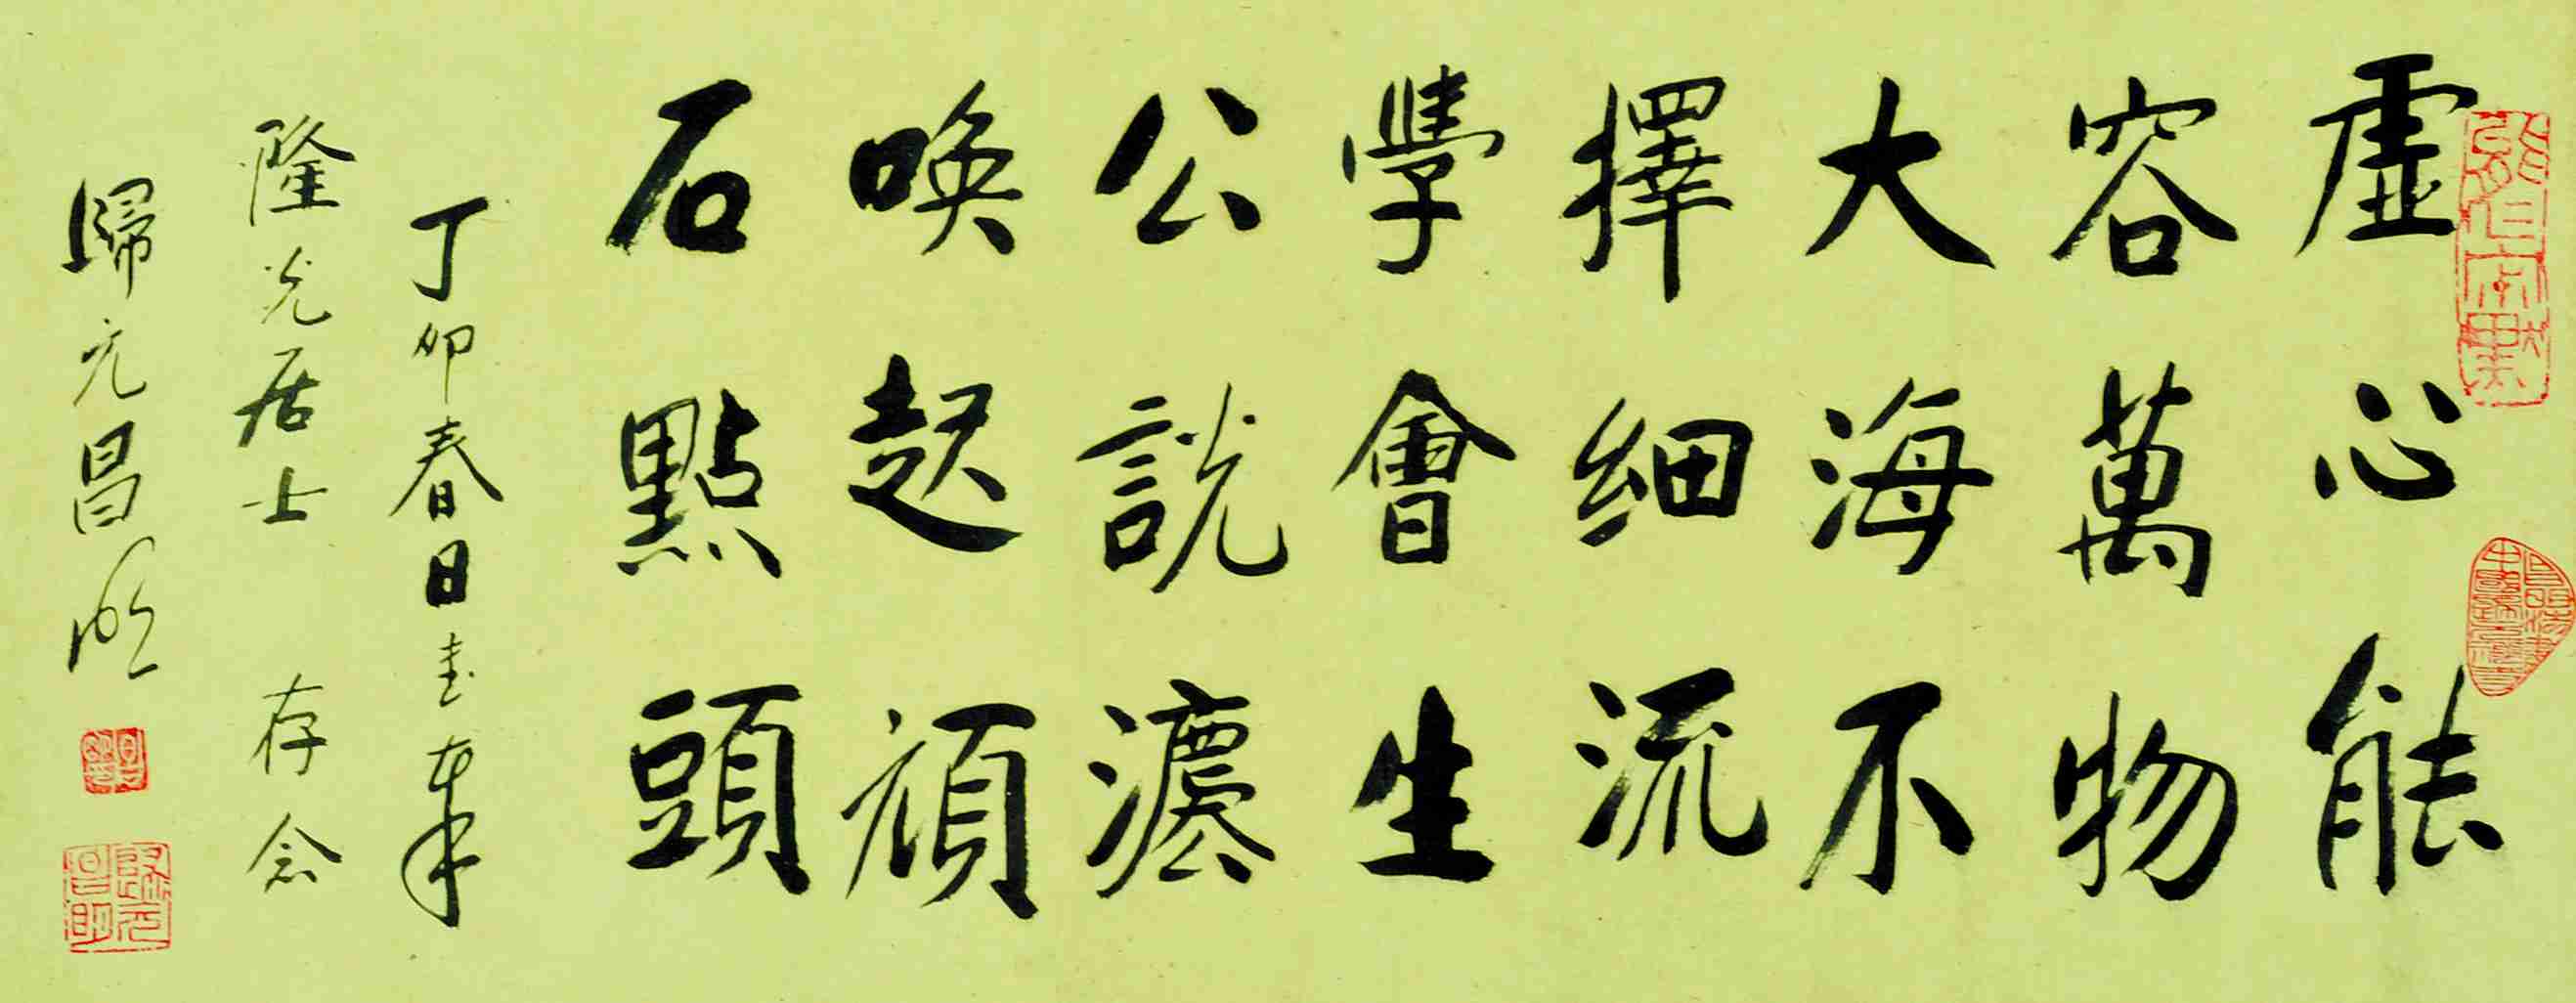 虛心能
容萬物
大海不
擇細流
學會生
公說灋
喚起頑
石點頭
丁卯春日書奉
隆光居士 存念
歸元昌明
歸元昌明